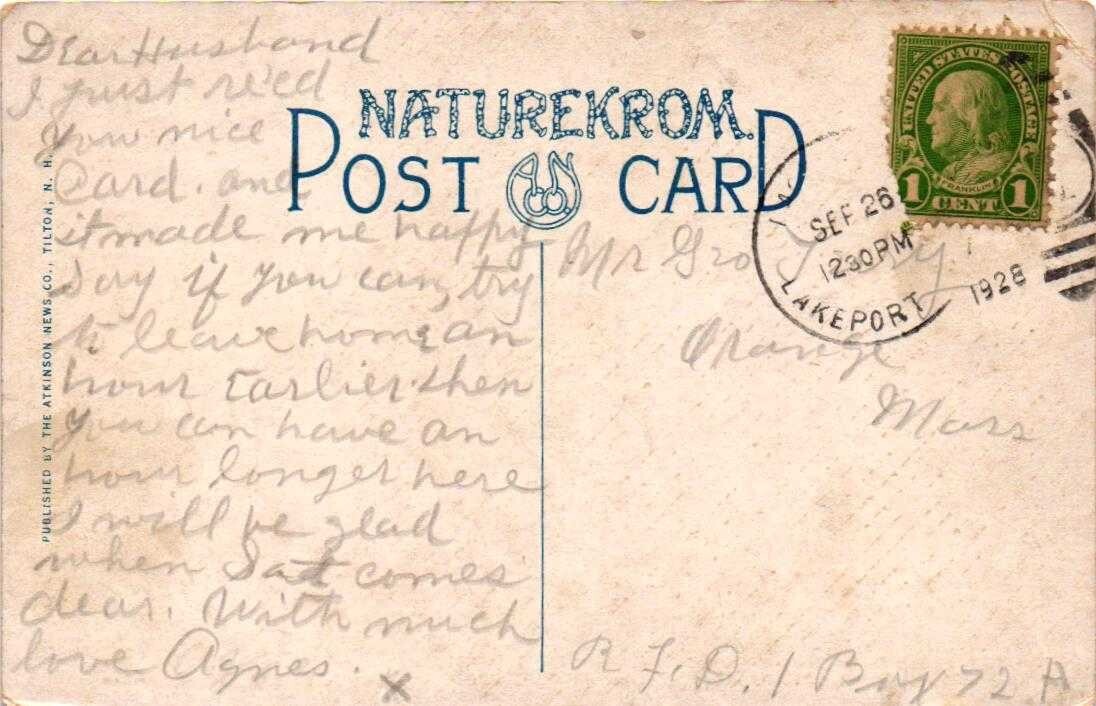 Dear Husband
I just re'cd
your nice
Card. and
it made me happy
Say if you can, try
to leave home an
hour Earlier then
you can have an
hour longer here
I will be glad
when Sat comes
dear. With much
love Agnes.
x
NATUREKROM
POST CARD
A N Co.
PUBLISHED BY THE ATKINSON NEWS CO., TILTON, N. H.
UNITED STATES POSTAGE
FRANKLIN
1 CENT 1
SEP 26
1230 PM
1928
LAKEPORT
Mr Geo
Orange
Mass
R. F. D. 1 Box 72 A